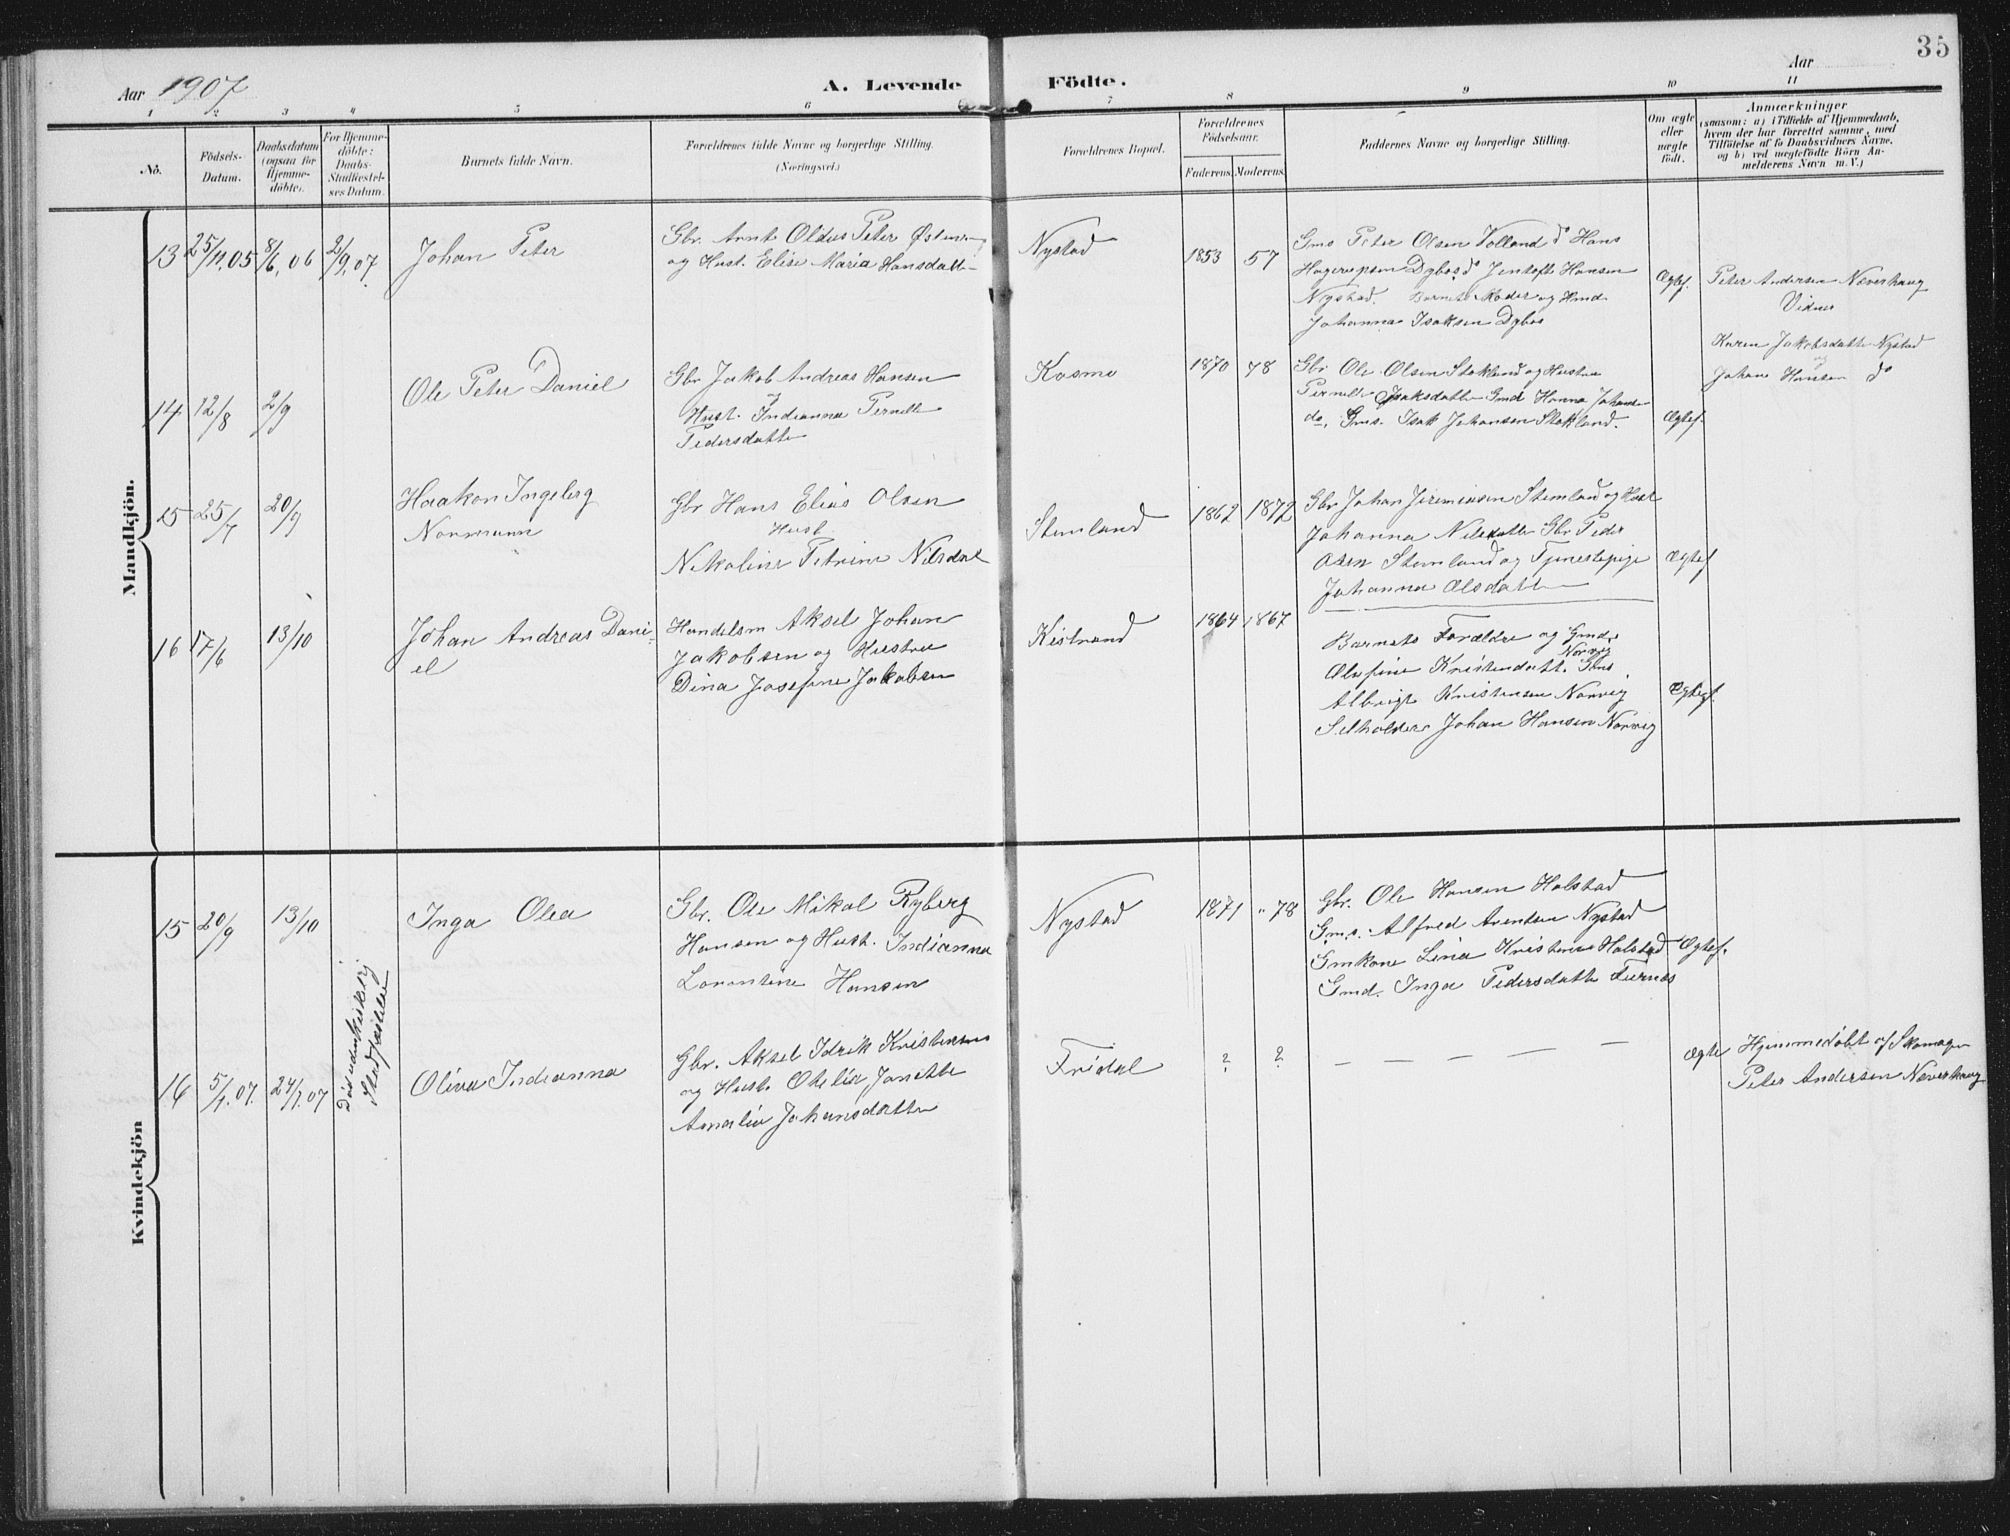 35
Aar 1907
A. Levende Födte.
Aar
1 2 3 4 5 6 7 8 9 10 11
No.
Födsels-
Datum.
Daabsdatum
(ogsaa for
Hjemme-
döbte).
For Hjemme-
döbte:
Daabs-
Stadfæstel-
ses Datum.
Barnets fulde Navn.
Forældrenes fulde Navne og borgerlige Stilling.
(Næringsvei.)
Forældrenes Bopæl.
Forældrenes
Födselsaar.
Faderens. Moderens.
Faddernes Navne og borgerlige Stilling.
Om ægte
eller
uægte
födt.
Anmærkninger
(saasom: a) i Tilfælde af Hjemmedaab,
hvem der har forrettet samme, med
Tilföielse af to Daabsvidners Navne,
og b) ved uægtefödte Börn An-
melderens Navn m. V.)
Mandkjön.
13 25/11.05 8/6, 06 2/9.07.
Johan Peter
Gbr. Arnt Oldus Peter
og Hust. Elise Maria Hansdatte
Nystad
1853 57
Gms Peter Olsen Volland d Hans
Hagerupsen Dybos d Jentoft Hansen
Nystad. Barnets Moder og Gmd
Johanna Isaksen Dybos
Ægtef.
Peter Andersen Næverhaug
Vidner
Karen Jakobsdatte Nystad
og
Johan Hansen do
14 12/8 2/9
Ole Peter Daniel
Gbr Jakob Andreas Hansen
og
Hust. Indianna Pernelle
Pedersdatte
Kosmo
1870 78
Gbr Ole Olsen Stokland og Hustru
Pernelle Isaksdatte Gmd Hanna Johans-
da, Gms. Isak Johansen Stokland.
Ægtef.
15 25/7 20/9
Haakon Ingeberg
Normann
Gbr Hans Elias Olsen
Hust.
Nikoline Petrine Nilsdat
Stemland
1862 1872
Gbr Johan Jeremiasen Stemland og Hust
Johanna Nilsdatte Gbr Peder
Olsen Stemland og Tjenestepige
Johanna Olsdatte
Ægtef
16 17/6 13/10
Johan Andreas Dani-
el
Handelsm Aksel Johan
Jakobsen og Hustru
Dina Josefine Jakobsen
Kistrand
1864 1867
Barnets Forældre og Gmd.
Norvig
Olufine Kristensdatt. Gms.
Albrigt Kristensen Norvig
Selholder Johan Hansen Norvig
Ægtef.
Kvindekjön
15 20/9 13/10
Inga Olea
Gbr. Ole Mikal Ryberg
Hansen og Hust. Indianna
Lorentine Hansen
Nystad
1871 " 78
Gbr. Ole Hansen Halstad
Gms. Alfred Arentsen Nystad
Gmkone Lina Kristense Halstad
Gmd. Inga Pedersdatte Fiernes
Ægtef.
16 5/1.07. 24/1.07
Död uden kirkelig
Stadfæstelse
Oliva Indianna
Gbr. Aksel Idrik Kristensen
og Hust. Otelia Janette
Amalia Johansdatte
Fridal
? ?
— — — — —
Ægte
Hjemmedöbt af Skomager
Peter Andersen Næverhaug